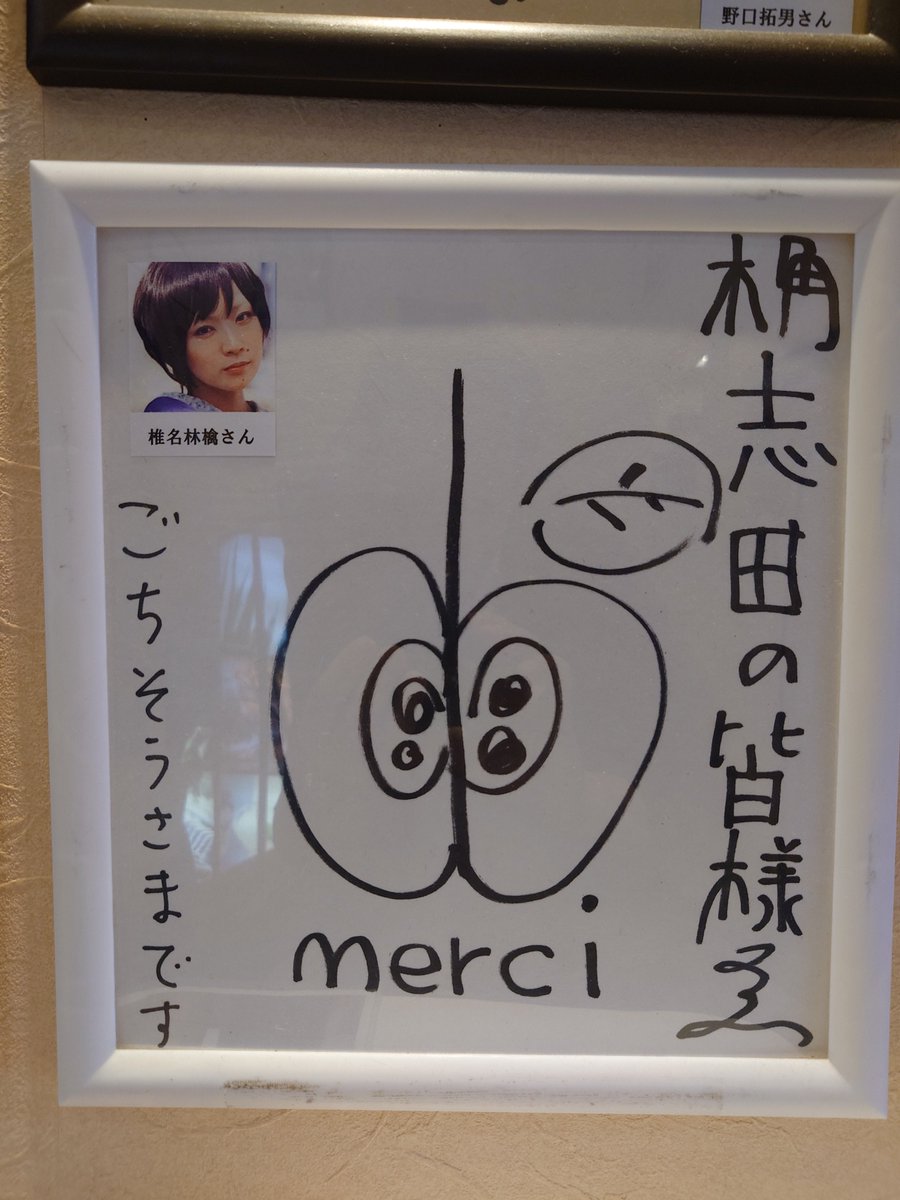 野口拓男さん
桷志田の皆様ゑ
椎名林檎さん
merci
ごちそうさまです